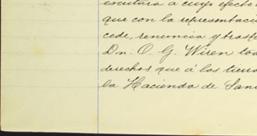 escritura a cuyo efecto
que con la representaci
cede, renuncia y trasp
Dn. O. G. Wiren to
derechos que á los tierr
la Hacienda de San